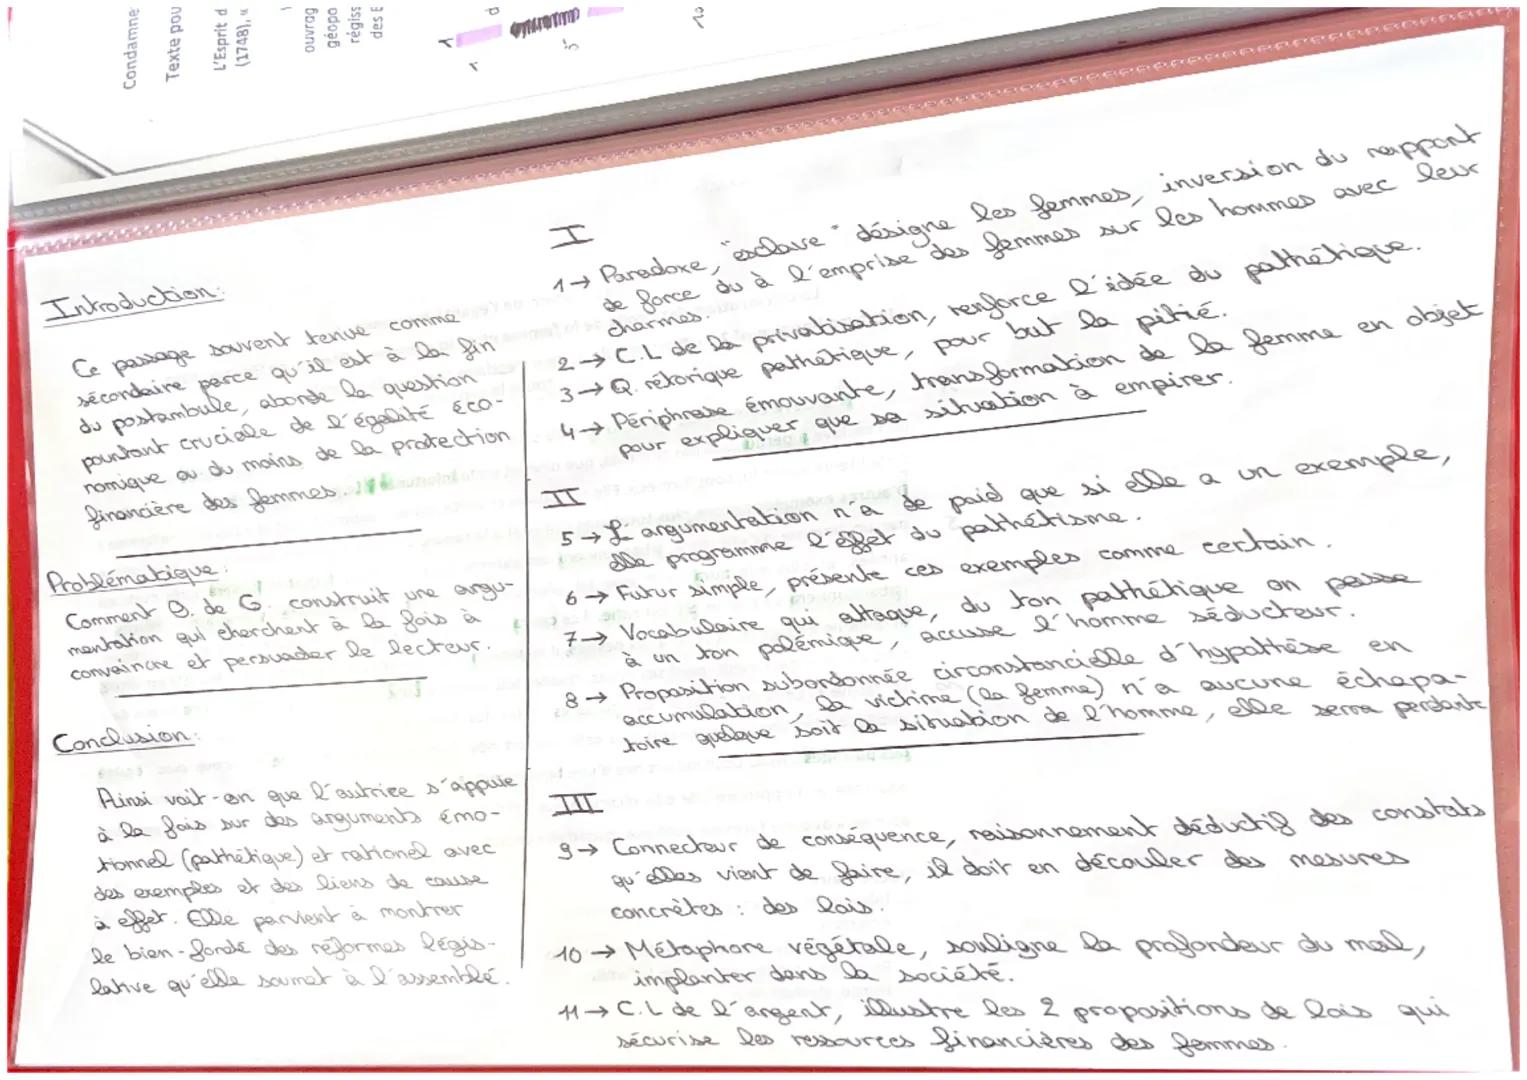 Condamne
Texte pou
L'Esprit d
(1748), «
ouvrag
géopo
régiss
des E
Introduction:
Ce passage souvent tenue comme
sécondaire parce qu'il est à la fin
du postambule, aborde la question
pourtant cruciale de l'égalité éco-
nomique ou du moins de la protection
financière des femmes.
Problématique:
Comment O. de G. construit une argu-
mentation qui cherchent à la fois à
convaincre et persuader le lecteur.
Conclusion:
Ainsi voit-on que l'autrice s'appuie
à la fois sur des arguments émo-
tionnel (pathétique) et rationel avec
des exemples et des liens de cause
à effet. Elle parvient à montrer
le bien-fondé des réformes légis-
lative qu'elle soumet à l'assemblé.
I
1→ Paradoxe, "esclave" désigne les femmes, inversion du rapport
de force du à l'emprise des femmes sur les hommes avec leur
charmes.
2→ C.L de la privatisation, renforce l'idée du pathétique.
3→ Q. rétorique pathétique, pour but la pitié.
4→ Périphrase émouvante, transformation de la femme en objet
pour expliquer que sa situation à empirer.
II
5→ L'argumentation n'a de poid que si elle a un exemple,
elle programme l'effet du pathétisme.
6→ Futur simple, présente ces exemples comme certain.
7→ Vocabulaire qui attaque, du ton pathétique on passe
à un ton polémique, accuse l'homme séducteur.
8→ Proposition subordonnée circonstancielle d'hypothèse en
accumulation, la victime (la femme) n'a aucune échapa-
toire quelque soit la situation de l'homme, elle serra perdante
III
9→ Connecteur de conséquence, raisonnement déductif des constats
qu'elles vient de faire, il doit en découler des mesures
concrètes : des lois.
10→ Métaphore végétale, souligne la profondeur du mal,
implanter dans la société.
11→ C.L de l'argent, illustre les 2 propositions de lois qui
sécurise les ressources financières des femmes.